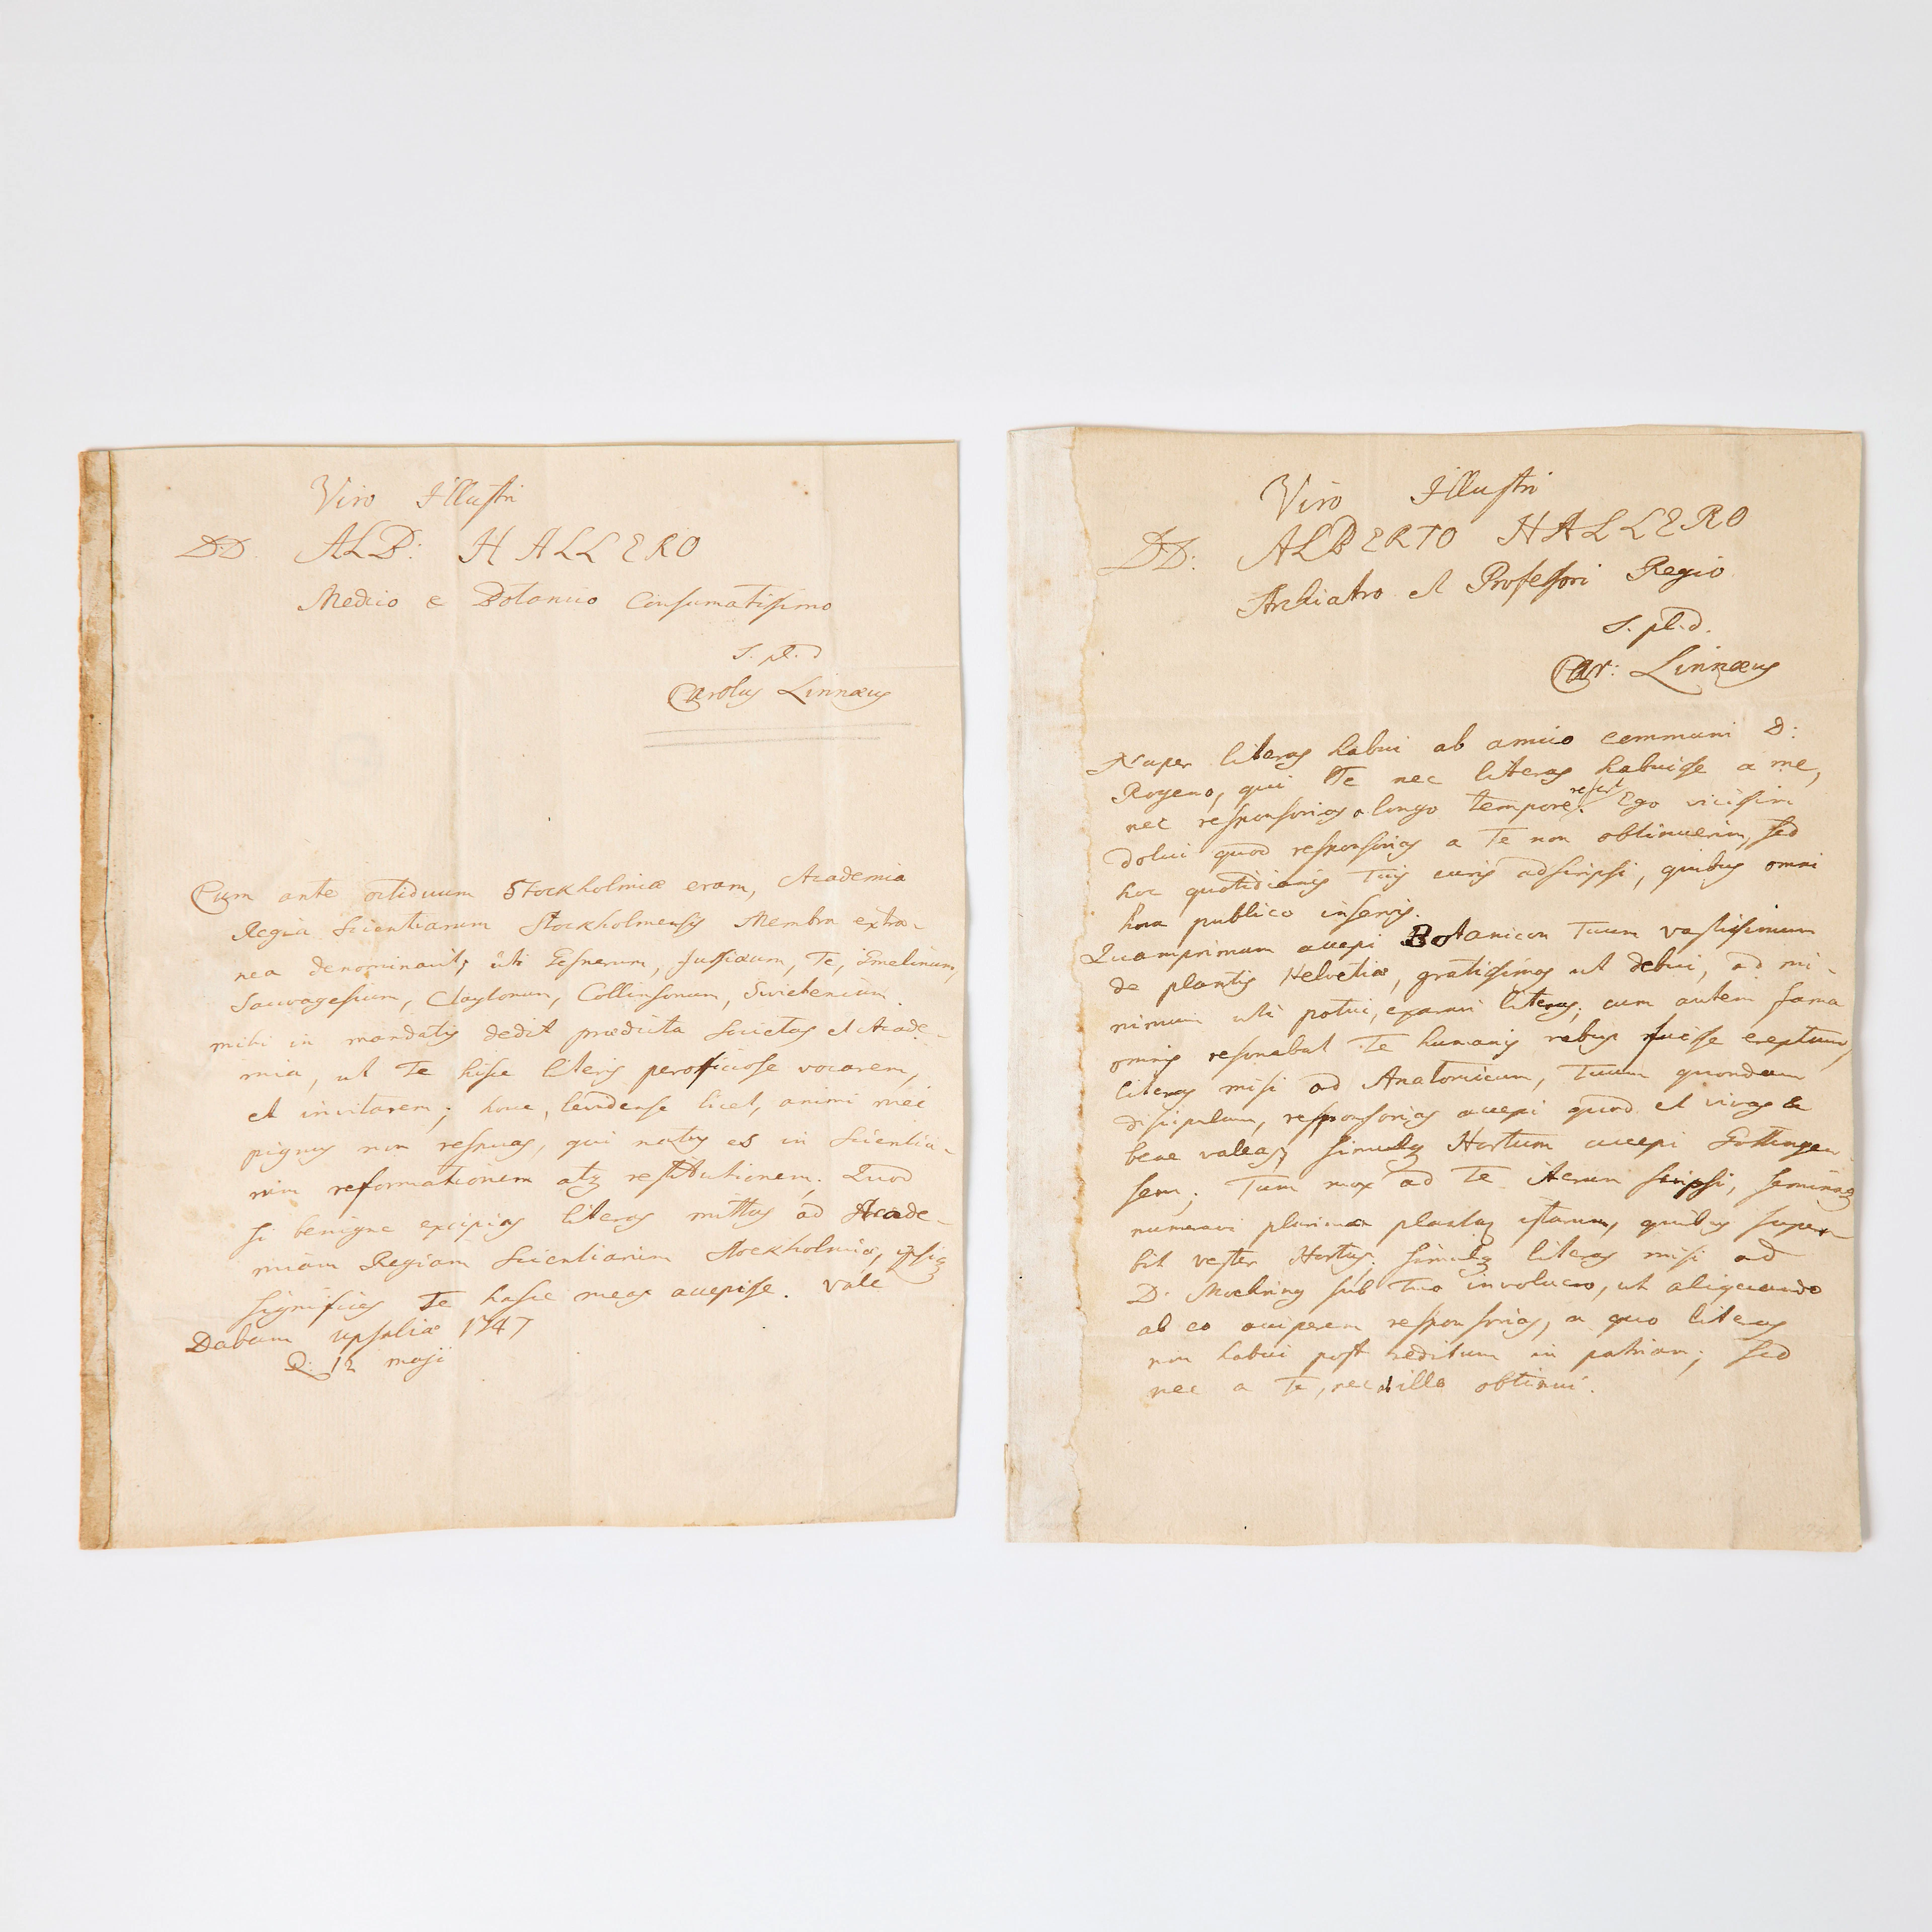 Viro Illustri
D.D. ALB: HALLERO
Medico e Botanico Consumatissimo
S. pl. d
Carolus Linnæus
Cum ante octiduum Stockholmiæ eram, Academia
Regia Scientiarum Stockholmensis Membra extra-
nea denominavit, uti Gesnerum, Jussiæum, Te, Gmelinum,
Sauvagesium, Claytonum, Collinsonum, Swietenium.
mihi in mandatis dedit prædicta Societas et Acade-
mia, ut Te hisce literis perofficiose vocarem,
et invitarem; hocce, levidense licet, animi mei
pignus non respuas, qui natus es in Scientia-
rum reformationem atq restitutionem. Quod
si benigne excipias literas mittas ad Acade-
miam Regiam Scientiarum Stockholmiæ, ipsiq
significes Te hasce meas accepisse. Vale
Dabam Upsaliæ 1747
D. 12 maji
Viro Illustri
DD: ALBERTO HALLERO
Archiatro et Professori Regio
S. pl. d.
Car: Linnæus
Nuper literas habui ab amico communi D:
Royeno, qui Te nec literas habuisse a me,
nec responsorias a longo tempore refert. Ego vicissim
dolui quod responsorias a Te non obtinuerim, sed
hoc quotidianis Tuis curis adscripsi, quibus omni
hora publico inservis.
Quamprimum accepi Botanicon Tuum vastissimum
de plantis Helvetiæ, gratissimas ut debui, ad mi-
nimum uti potui, exaravi literas; cum autem fama
omnis resonabat Te humanis rebus fuisse ereptum,
literas misi ad Anatomicum, Tuum quondam
discipulum, responsorias accepi quod et vivas &
bene valeas, simulq Hortum accepi Gottingen-
sem; Tum mox ad Te iterum scripsi, seminaq
numeravi plurima plantaq istarum, quibus super-
bit vester Hortus. simulq literas misi ad
D. Moehring sub Tuo involucro, ut aliquando
ab eo acciperem responsorias, a quo literas
non habui post reditum in patriam; sed
nec a Te, nec ab illo obtinui.